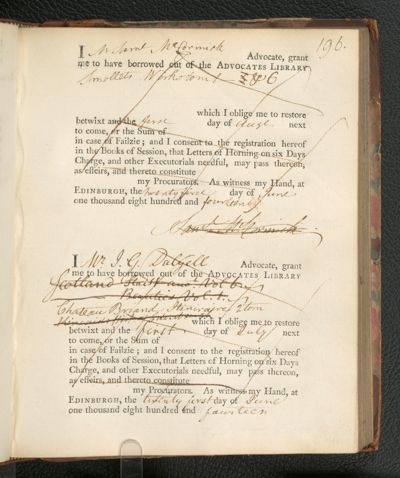 196.
I Mr Saml McCormick Advocate, grant
me to have borrowed out of the ADVOCATES LIBRARY
Smollets Works vol 6
which I oblige me to restore
betwixt and the first day of July next
to come, or the Sum of
in case of Failzie; and I consent to the registration hereof
in the Books of Session, that Letters of Horning on six Days
Charge, and other Executorials needful, may pass thereon,
as effeirs, and thereto constitute
my Procurators. As witness my Hand, at
EDINBURGH, the twenty first day of June
one thousand eight hundred and fourteen
McCormick
I Mr J. G. Dalyell Advocate, grant
me to have borrowed out of the ADVOCATES LIBRARY
Scotland
Beauties Vol.
Chateau Briand, Itineraire 2 tom
which I oblige me to restore
betwixt and the first day of July next
to come, or the Sum of
in case of Failzie; and I consent to the registration hereof
in the Books of Session, that Letters of Horning on six Days
Charge, and other Executorials needful, may pass thereon,
as effeirs, and thereto constitute
my Procurators. As witness my Hand, at
EDINBURGH, the twenty first day of June
one thousand eight hundred and fourteen